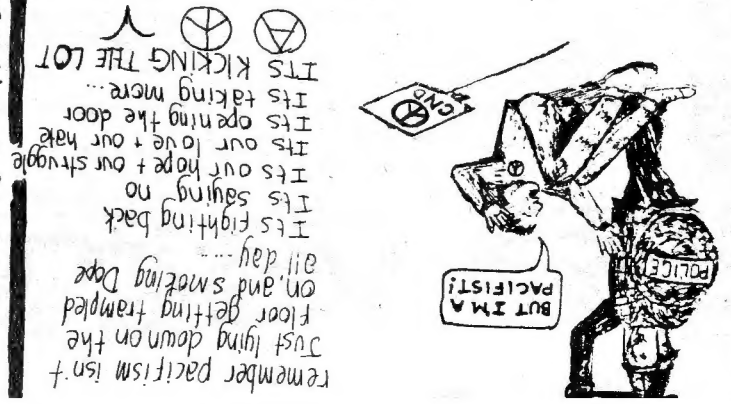 BUT I'M A
PACIFIST!
POLICE
CND
remember pacifism isn't
Just lying down on the
floor getting trampled
on, and smoking Dope
all day.....
Its fighting back
Its saying no
Its our hope + our struggle
Its our love + our hate
Its opening the door
Its taking more...
ITS KICKING THE LOT